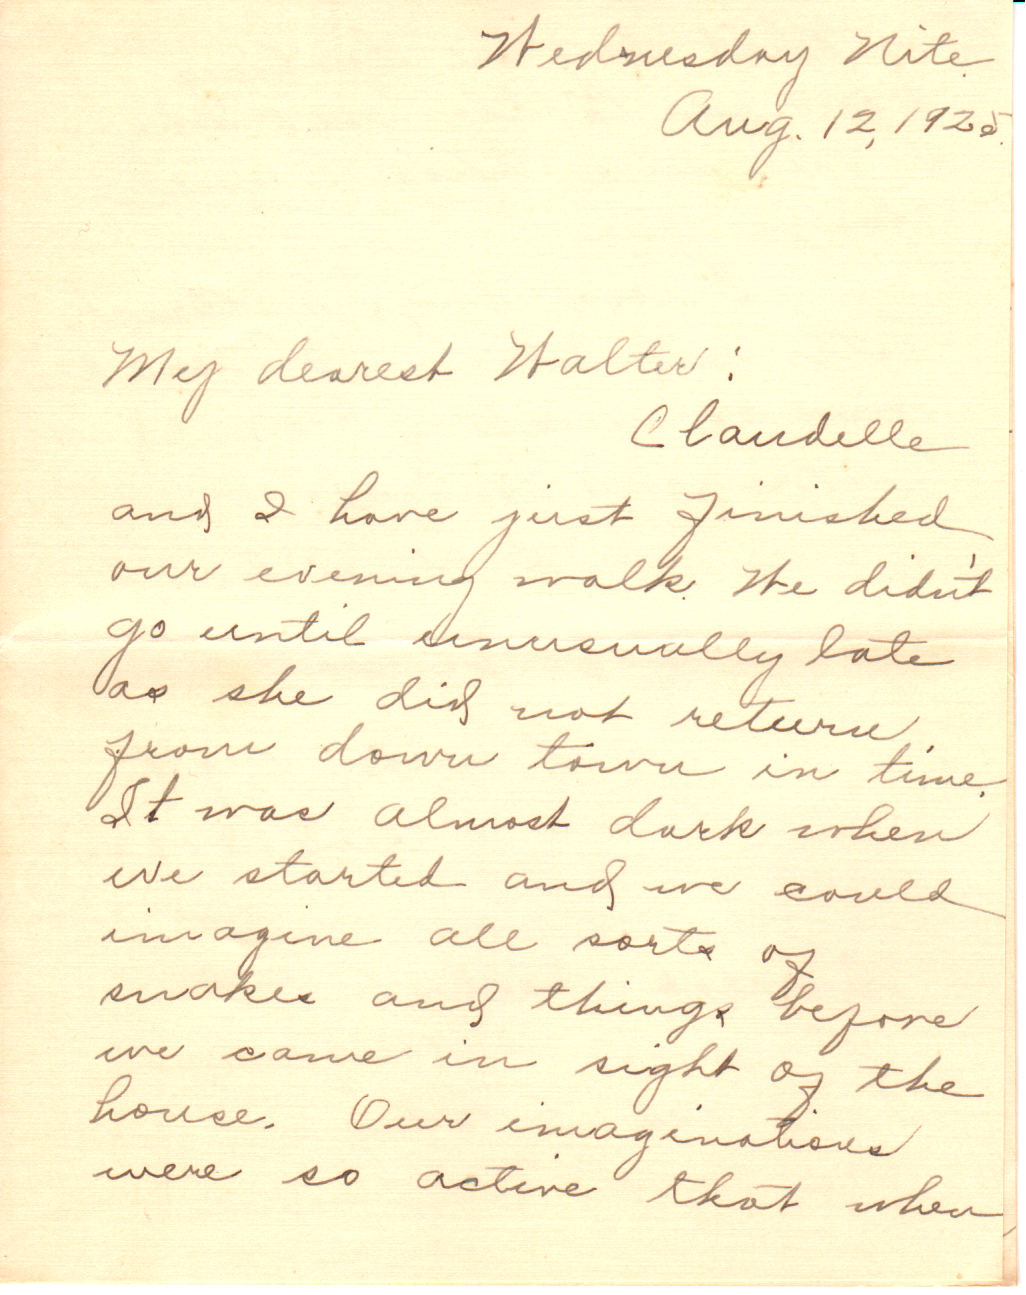 Wednesday Nite.
Aug. 12, 1925.
My dearest Walter:
Claudelle
and I have just finished
our evening walk. We didn't
go until unusually late
as she did not return
from down town in time.
It was almost dark when
we started and we could
imagine all sorts of
snakes and things before
we came in sight of the
house. Our imaginations
were so active that when